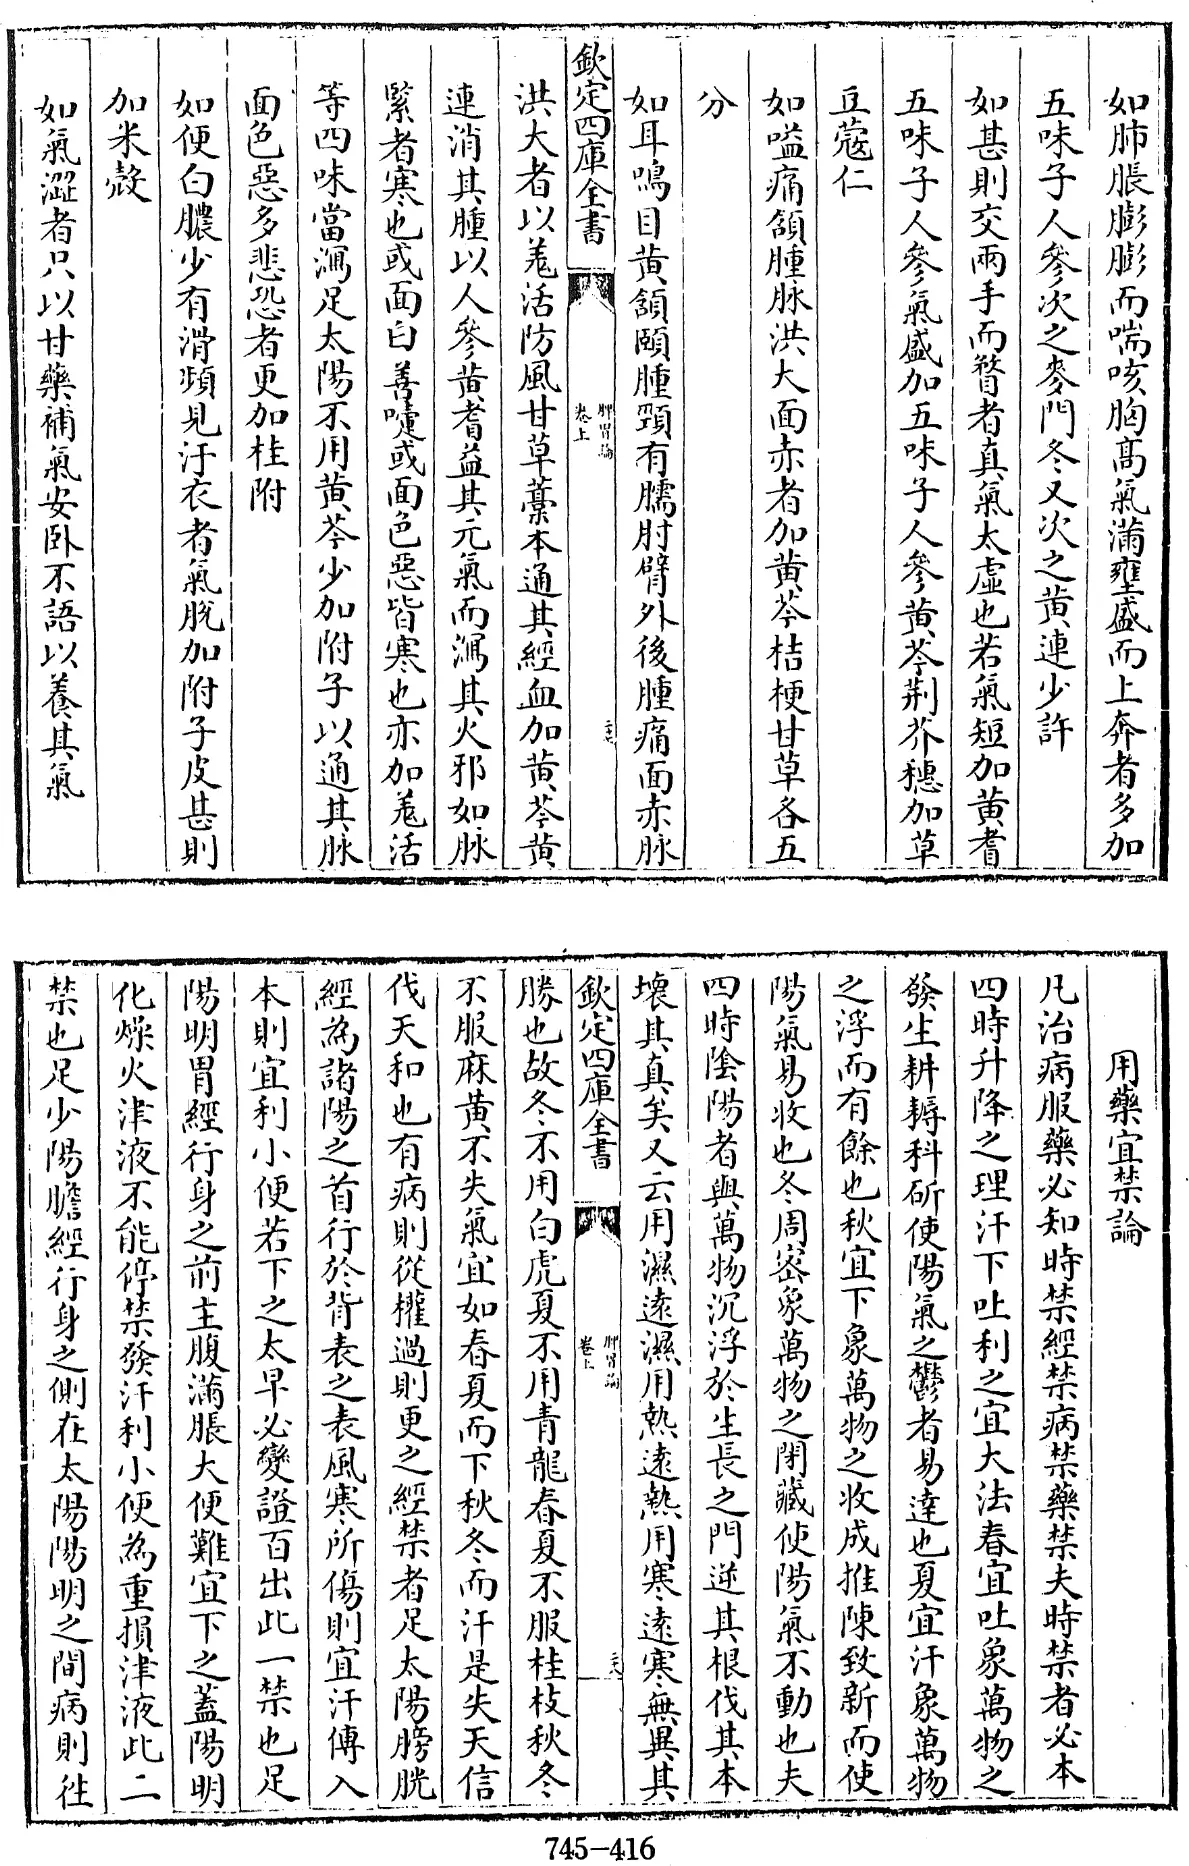 如肺脹膨膨而喘咳胸高氣滿壅盛而上奔者多加
五味子人參次之麥門冬又次之黄連少許
如甚則交兩手而瞀者真氣太虛也若氣短加黄耆
五味子人參氣盛加五味子人參黄芩荆芥穗加草
豆蔻仁
如嗌痛頷腫脉洪大面赤者加黄芩桔梗甘草各五
分
如耳鳴目黄頷頤腫頸有臑肘臂外後腫痛面赤脉
欽定四庫全書
脾胃論
卷上
二七
洪大者以羗活防風甘草藁本通其經血加黄芩黄
連消其腫以人參黄耆益其元氣而瀉其火邪如脉
緊者寒也或面白善嚏或面色惡皆寒也亦加羗活
等四味當瀉足太陽不用黄芩少加附子以通其脉
面色惡多悲恐者更加桂附
如便白膿少有滑頻見汙衣者氣脱加附子皮甚則
加米殼
如氣澀者只以甘藥補氣安卧不語以養其氣
用藥宜禁論
凡治病服藥必知時禁經禁病禁藥禁夫時禁者必本
四時升降之理汗下吐利之宜大法春宜吐象萬物之
發生耕耨科斫使陽氣之鬱者易達也夏宜汗象萬物
之浮而有餘也秋宜下象萬物之收成推陳致新而使
陽氣易收也冬周密象萬物之閉藏使陽氣不動也夫
四時陰陽者與萬物沉浮於生長之門逆其根伐其本
壞其真矣又云用濕遠濕用熱逺熱用寒逺寒無異其
欽定四庫全書
脾胃論
卷上
二八
勝也故冬不用白虎夏不用青龍春夏不服桂枝秋冬
不服麻黄不失氣宜如春夏而下秋冬而汗是失天信
伐天和也有病則從權過則更之經禁者足太陽膀胱
經為諸陽之首行於背表之表風寒所傷則宜汗傳入
本則宜利小便若下之太早必變證百出此一禁也足
陽明胃經行身之前主腹滿脹大便難宜下之蓋陽明
化燥火津液不能停禁發汗利小便為重損津液此二
禁也足少陽膽經行身之側在太陽陽明之間病則徃
745-416